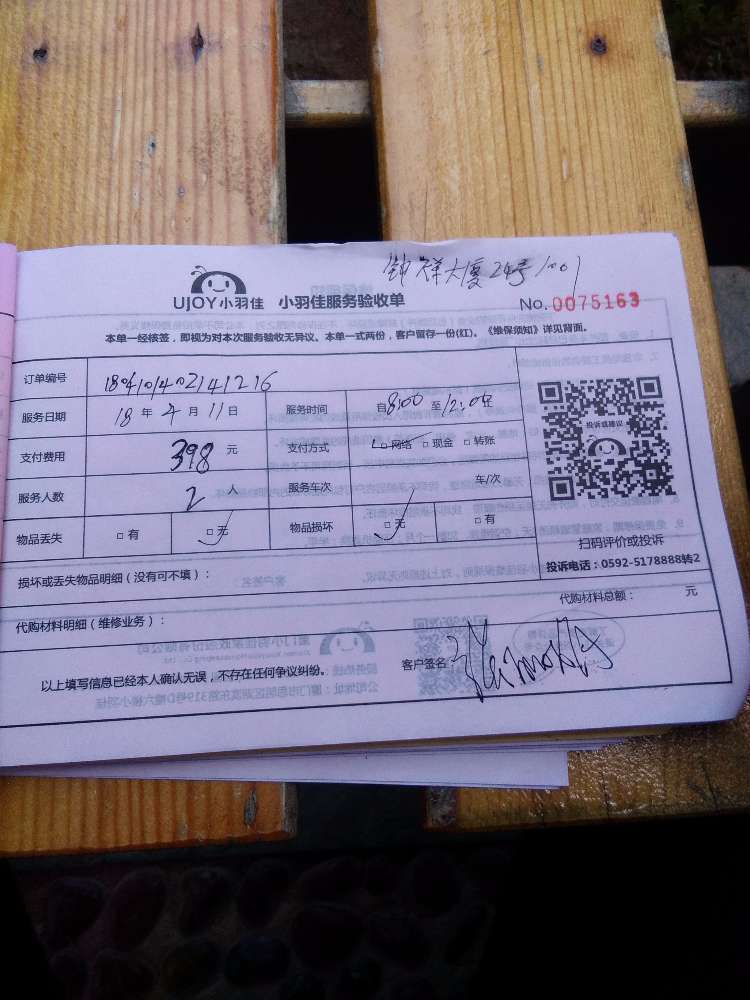 钟祥大厦24号1001
UJOY小羽佳 小羽佳服务验收单
No. 0075163
本单一经核签，即视为对本次服务验收无异议。本单一式两份，客户留存一份(红)。《维保须知》详见背面。
订单编号 1804101402141216
服务日期 18 年 4 月 11 日 服务时间 自8:00 至12:00
支付费用 398 元 支付方式 □ 网络 □ 现金 □ 转账
投诉或建议
服务人数 2 人 服务车次 车/次
物品丢失 □ 有 □ 无 物品损坏 □ 无 □ 有
扫码评价或投诉
投诉电话：0592-5178888转2
损坏或丢失物品明细（没有可不填）：
代购材料明细（维修业务）： 代购材料总额： 元
以上填写信息已经本人确认无误，不存在任何争议纠纷。 客户签名：